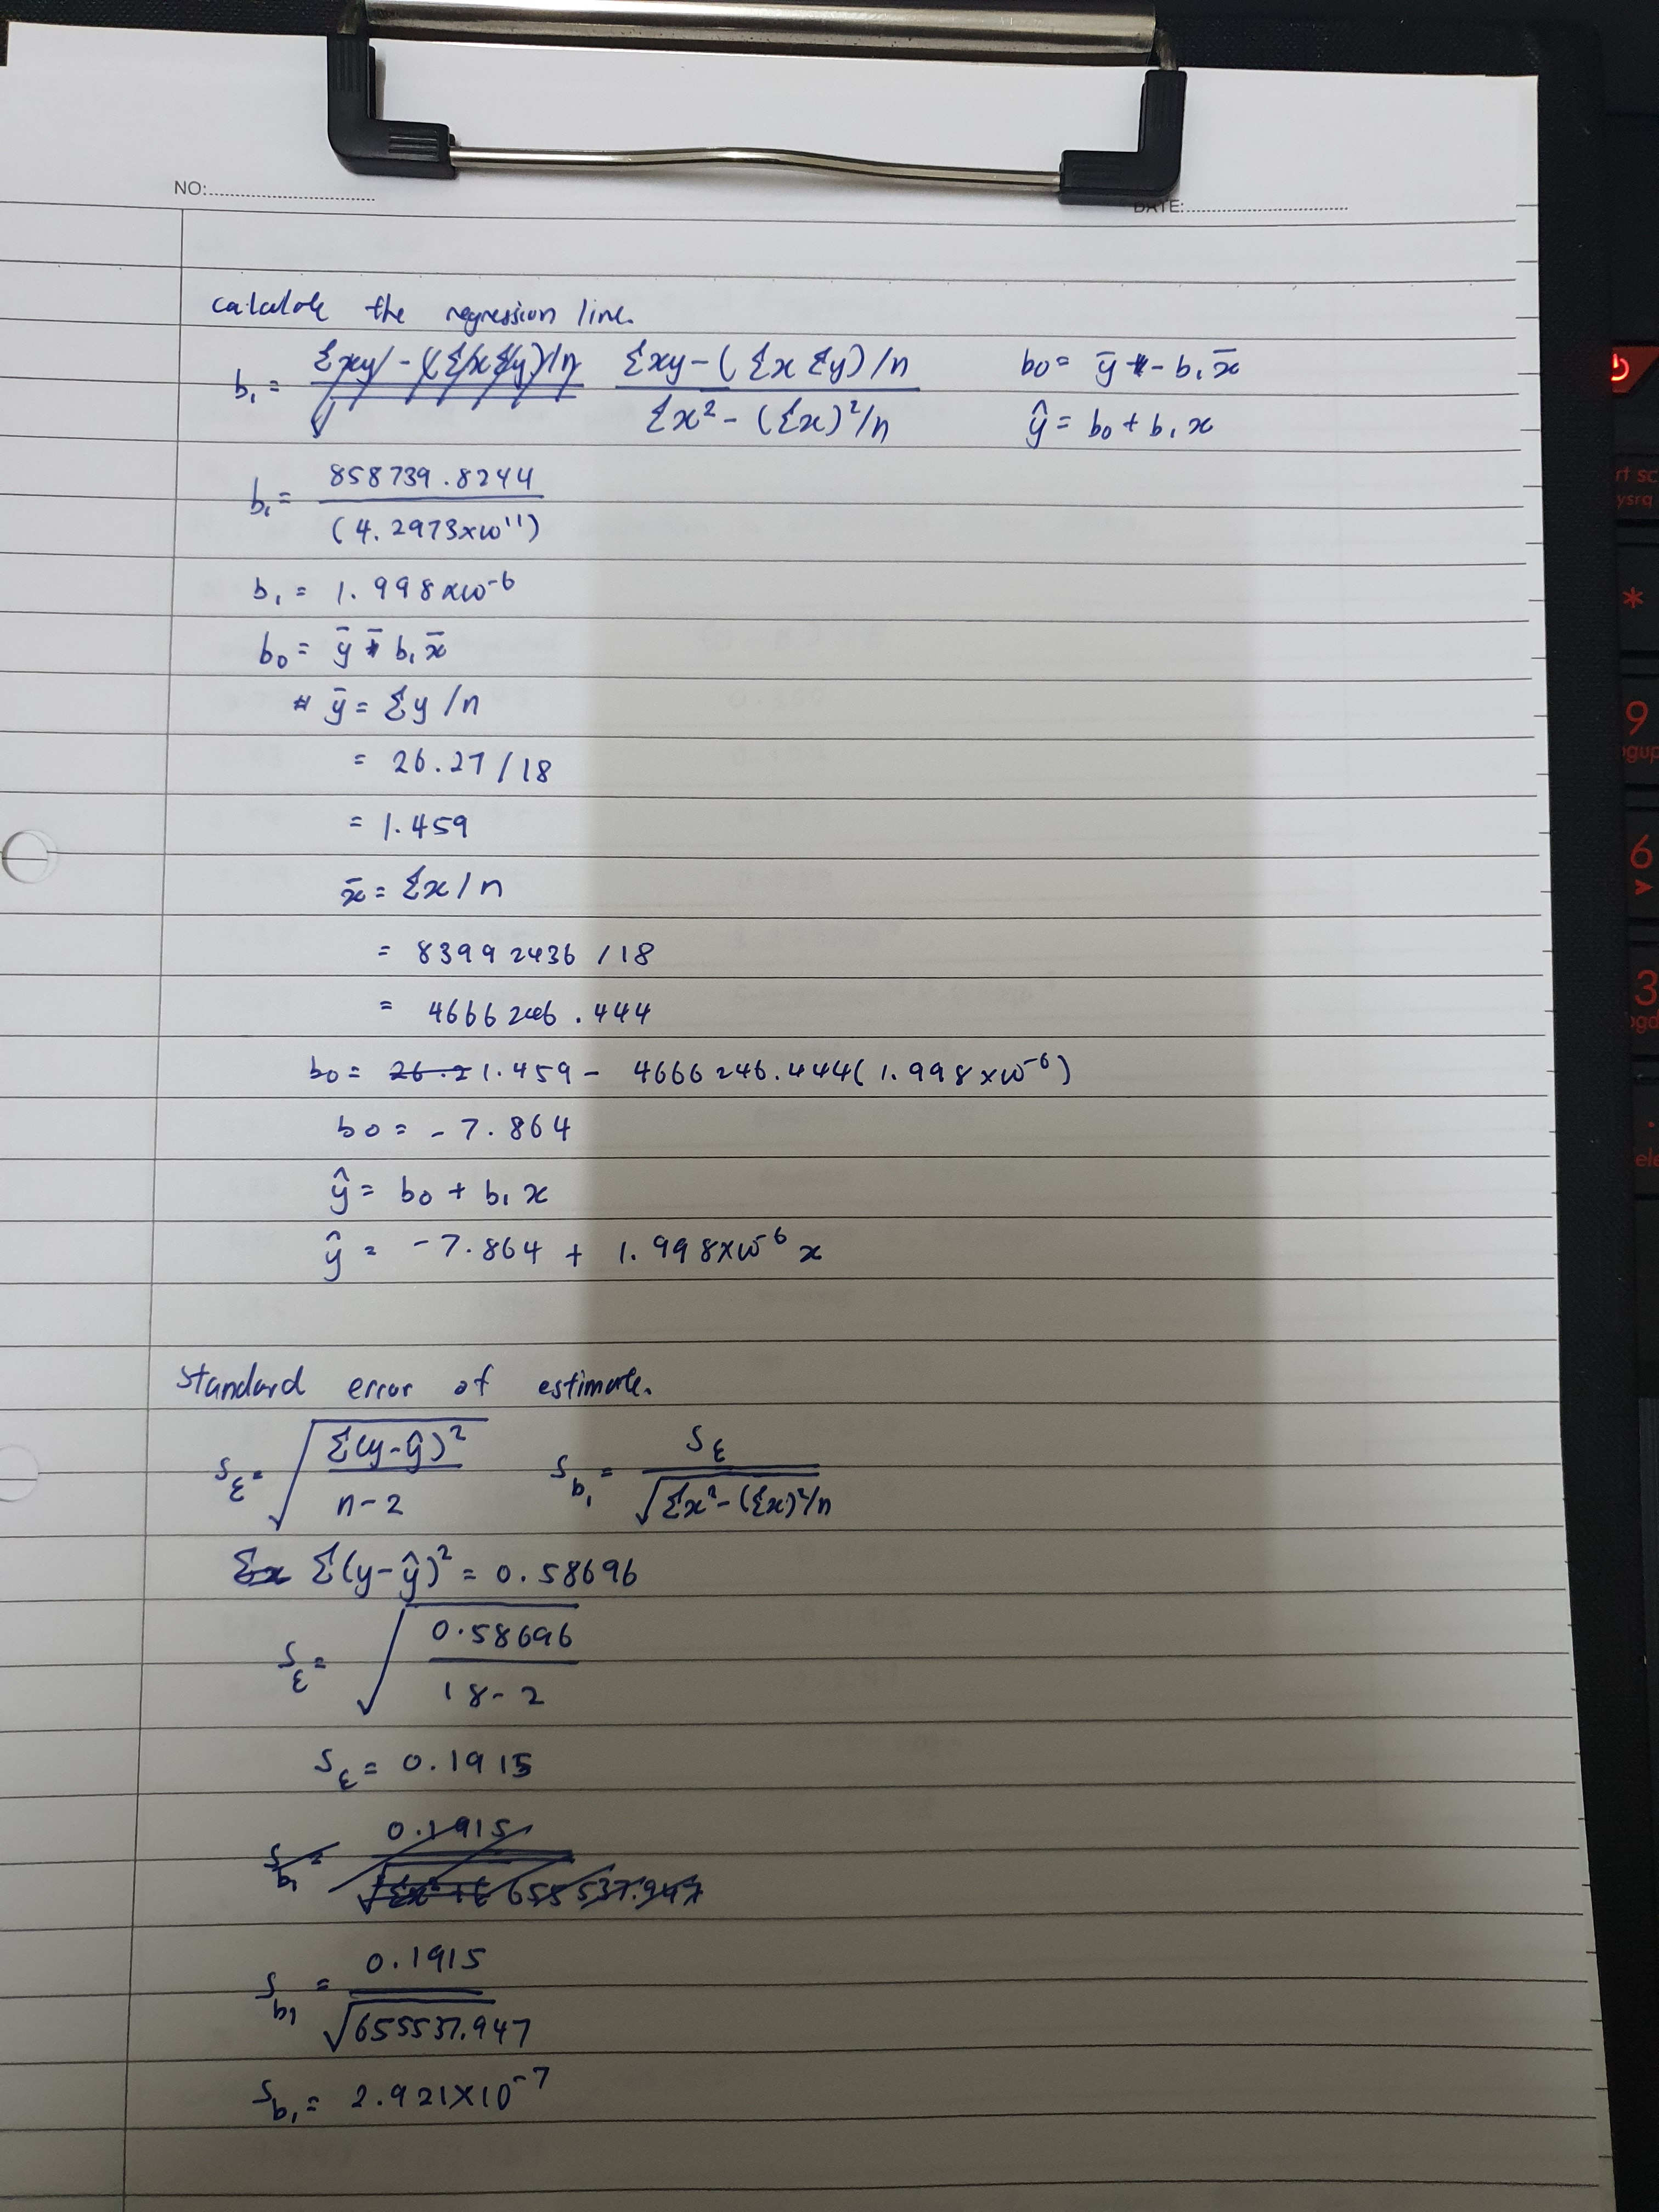 NO:
DATE:
calculate the regression line.
b₁ = Σxy - (Σx Σy)/n / Σx² - (Σx)²/n    b0 = ȳ - b₁x̄
ŷ = b0 + b₁x
b₁ = 858739.8244 / (4.2973x10¹¹)
b₁ = 1.998x10⁻⁶
b0 = ȳ - b₁x̄
ȳ = Σy/n
= 26.27/18
= 1.459
x̄ = Σx/n
= 83992436/18
= 4666246.444
b0 = 1.459 - 4666246.444(1.998x10⁻⁶)
b0 = -7.864
ŷ = b0 + b₁x
ŷ = -7.864 + 1.998x10⁻⁶ x
Standard error of estimate.
Sε = √(Σ(y-ŷ)² / n-2)    Sb₁ = Sε / √Σx² - (Σx)²/n
Σ(y-ŷ)² = 0.58696
Sε = √(0.58696 / 18-2)
Sε = 0.1915
Sb₁ = 0.1915 / √655537.947
Sb₁ = 2.921x10⁻⁷
*
9
6
3